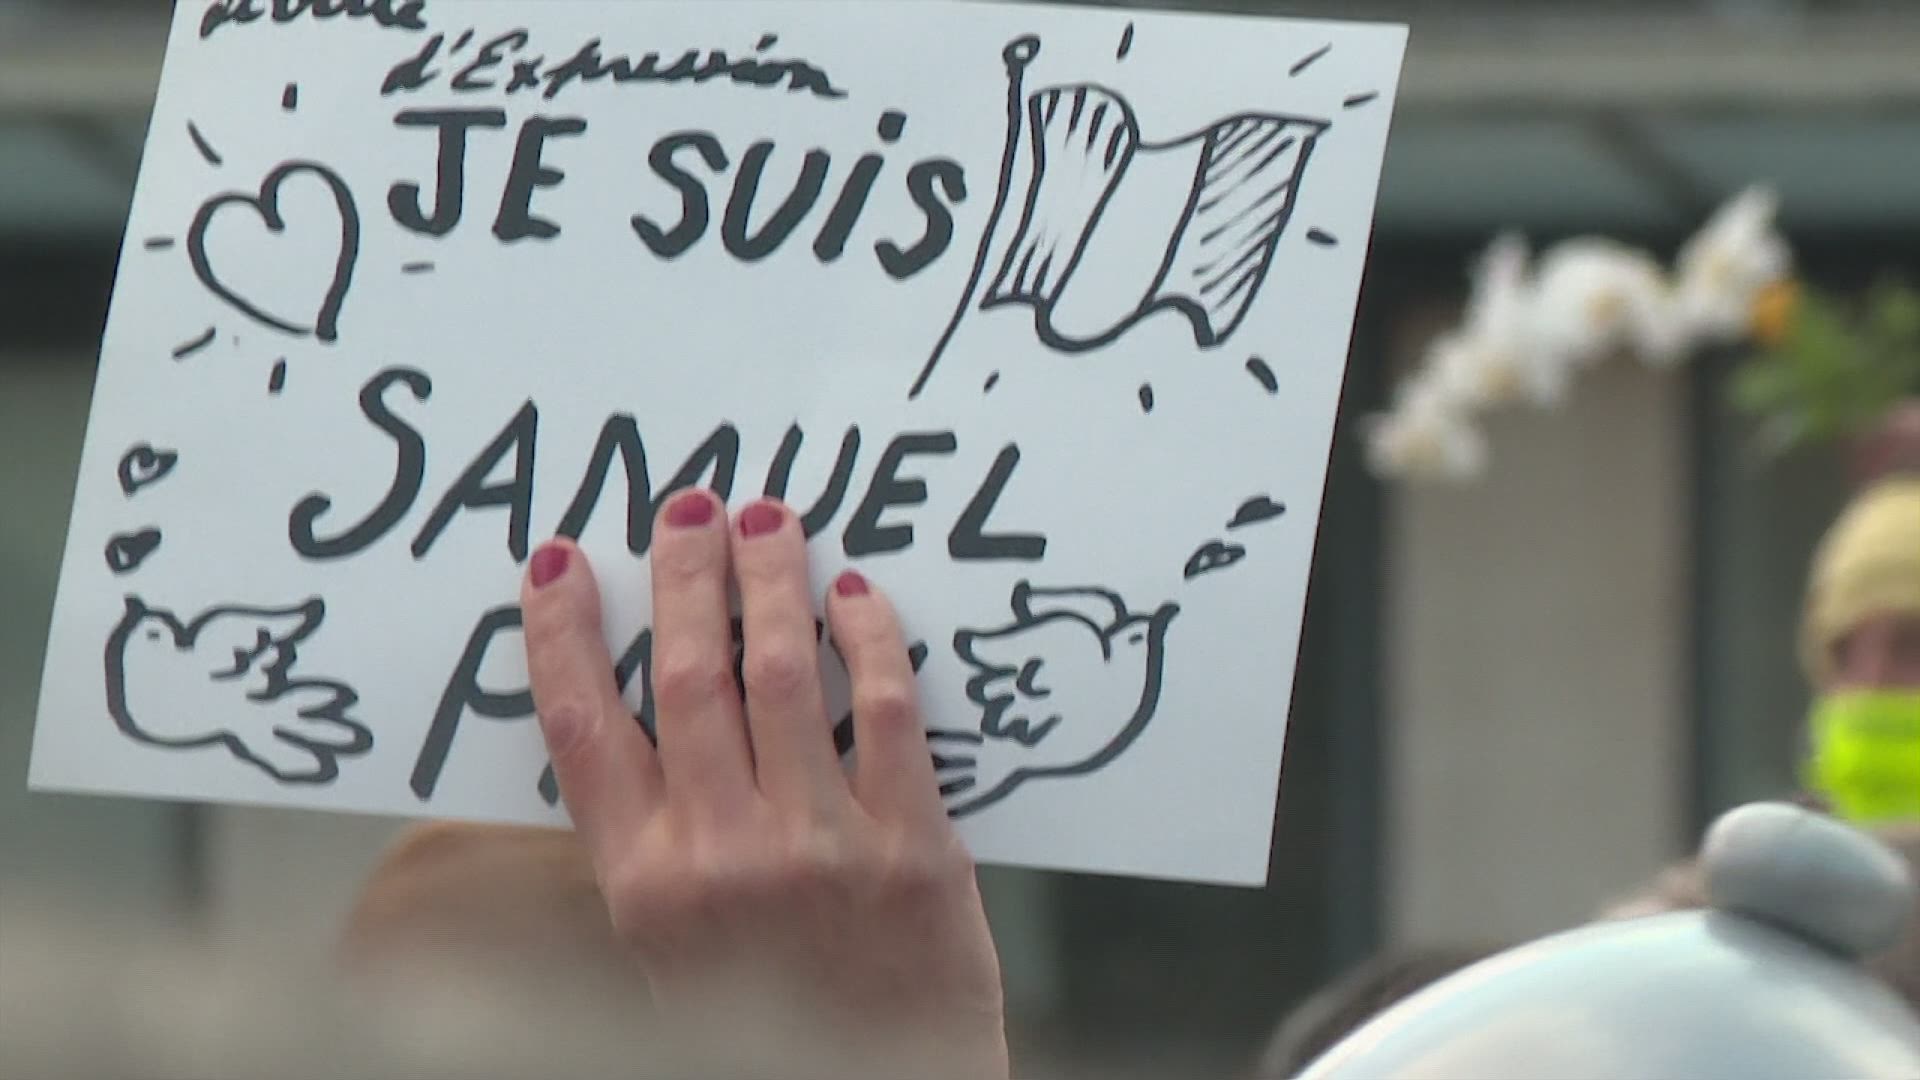 d'Expression
JE SUiS
SAMUEL